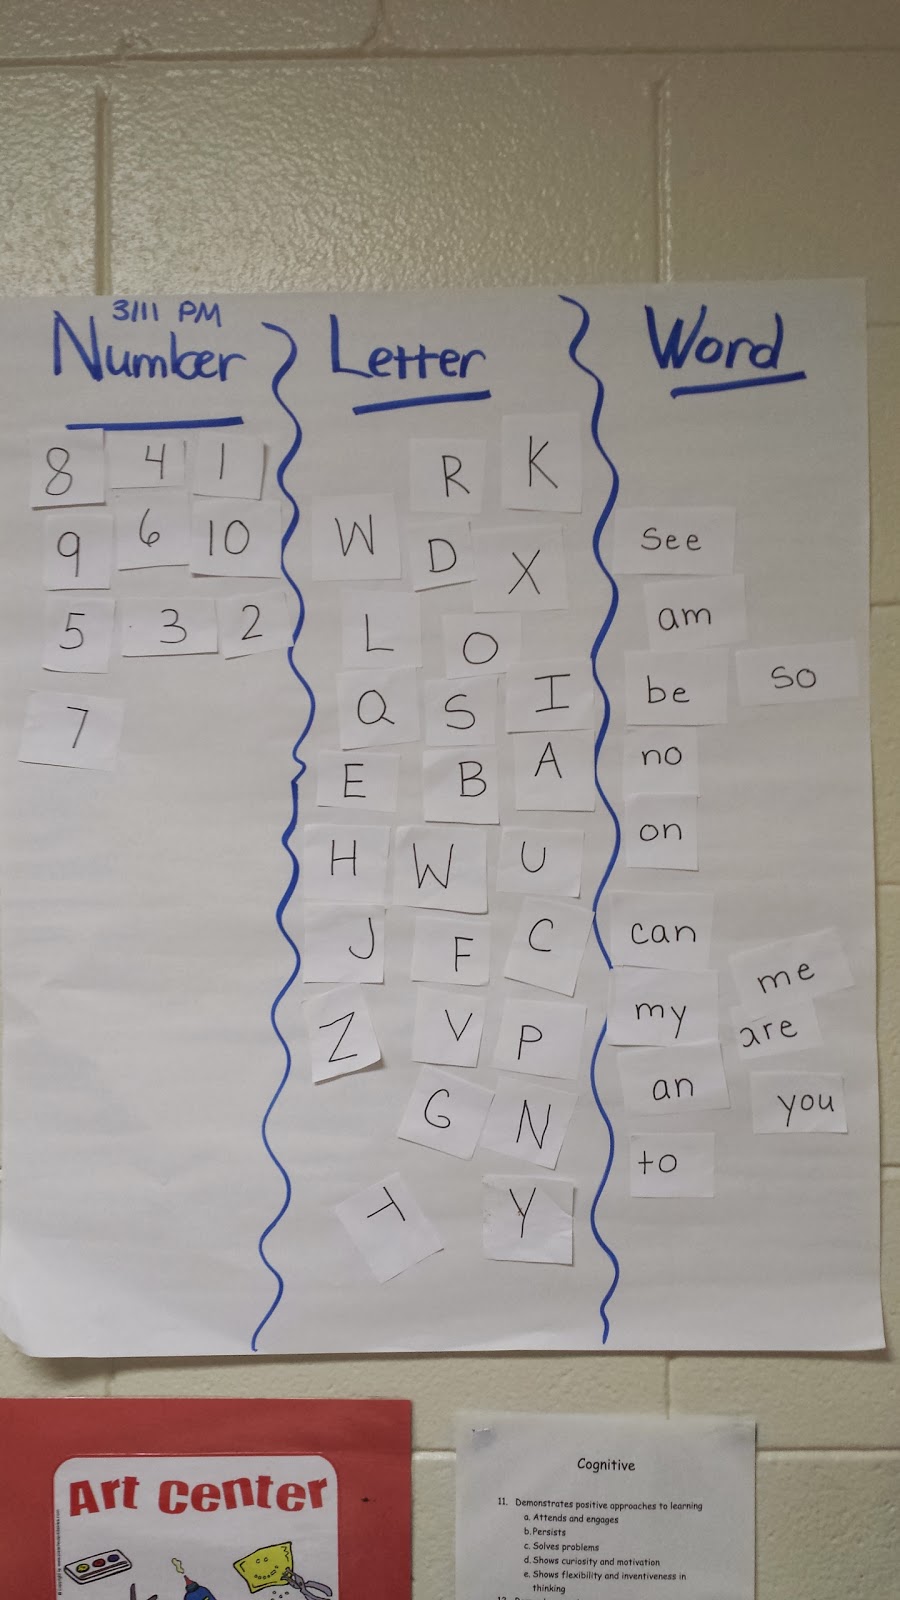 3/11 PM
Number
8 4 1
9 6 10
5 3 2
7
Letter
R K
W D X
L O
Q S I
E B A
H W U
J F C
Z V P
G N
T Y
Word
see
am
be so
no
on
can
my me
are
an you
to
Art Center
Cognitive
11. Demonstrates positive approaches to learning
a. Attends and engages
b. Persists
c. Solves problems
d. Shows curiosity and motivation
e. Shows flexibility and inventiveness in
thinking